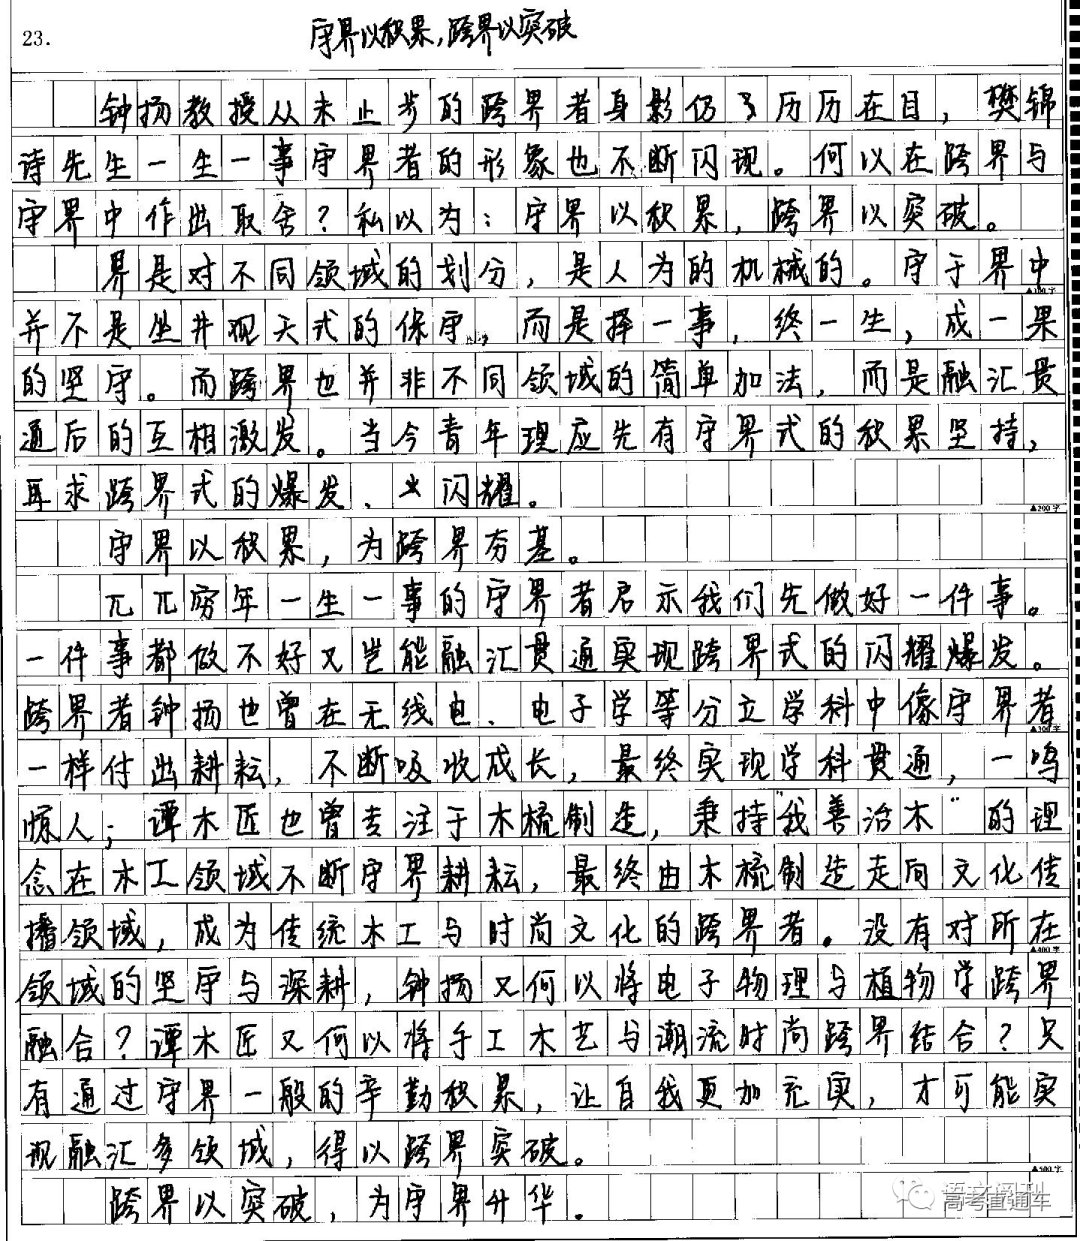 23.
守界以积累，跨界以突破
钟扬教授从未止步的跨界者身影仍历历在目，樊锦
诗先生一生一事守界者的形象也不断闪现。何以在跨界与
守界中作出取舍？私以为：守界以积累，跨界以突破。
界是对不同领域的划分，是人为的机械的。守于界中
▲100字
并不是坐井观天式的保守，而是择一事，终一生，成一果
的坚守。而跨界也并非不同领域的简单加法，而是融汇贯
通后的互相激发。当今青年理应先有守界式的积累坚持，
再求跨界式的爆发、闪耀。
▲200字
守界以积累，为跨界夯基。
兀兀穷年一生一事的守界者启示我们先做好一件事。
一件事都做不好又岂能融汇贯通实现跨界式的闪耀爆发。
跨界者钟扬也曾在无线电、电子学等分立学科中像守界者
▲300字
一样付出耕耘，不断吸收成长，最终实现学科贯通，一鸣
惊人；谭木匠也曾专注于木梳制造，秉持“我善治木”的理
念在木工领域不断守界耕耘，最终由木梳制造走向文化传
播领域，成为传统木工与时尚文化的跨界者。没有对所在
▲400字
领域的坚守与深耕，钟扬又何以将电子物理与植物学跨界
融合？谭木匠又何以将手工木艺与潮流时尚跨界结合？只
有通过守界一般的辛勤积累，让自我更加充实，才可能实
现融汇多领域，得以跨界突破。
▲500字
跨界以突破，为守界升华。
高考直通车